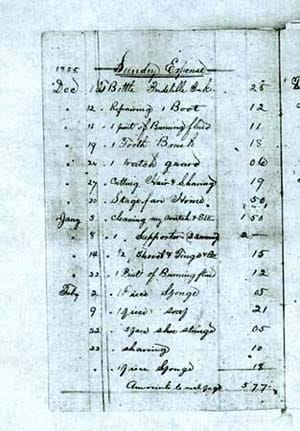 1855 Sundry Expense
Dec 1 Bottle Indelible Ink 25
" 12 " Repairing 1 Boot 12
" 15 " 1 pint of Burning fluid 11
" 19 " 1 Tooth Brush 18
" 24 " 1 Watch guard 06
" 27 " Cutting Hair & Shaving 19
" 30 " Stage fare Home 50
Jany 5 " Cleaning my watch 1 50
" 8 " 1 Supporter 2 —
" 14 " 1/2 Shovel & Tongs 15
" 22 " 1 Pint of Burning fluid 12
Feby 2 " 1 Piece Sponge 05
9 " 1 piece soap 21
22 " shoe strings 05
" 22 " shaving 10
" 1 piece Sponge 18
Amounts to next page 5 77